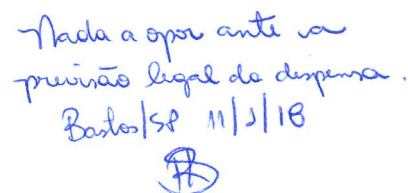 Nada a opor ante a
previsão legal da dispensa.
Bastos/SP 11/1/18